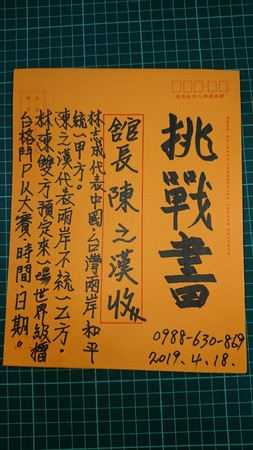 挑戰書
0988-630-869
2019.4.18.
舘長陳之漢收
林志成代表中國、台灣兩岸和平
統一甲方。
陳之漢代表兩岸不統一乙方。
林陳雙方預定來一場世界級擂
台格鬥PK大賽、時間、日期。